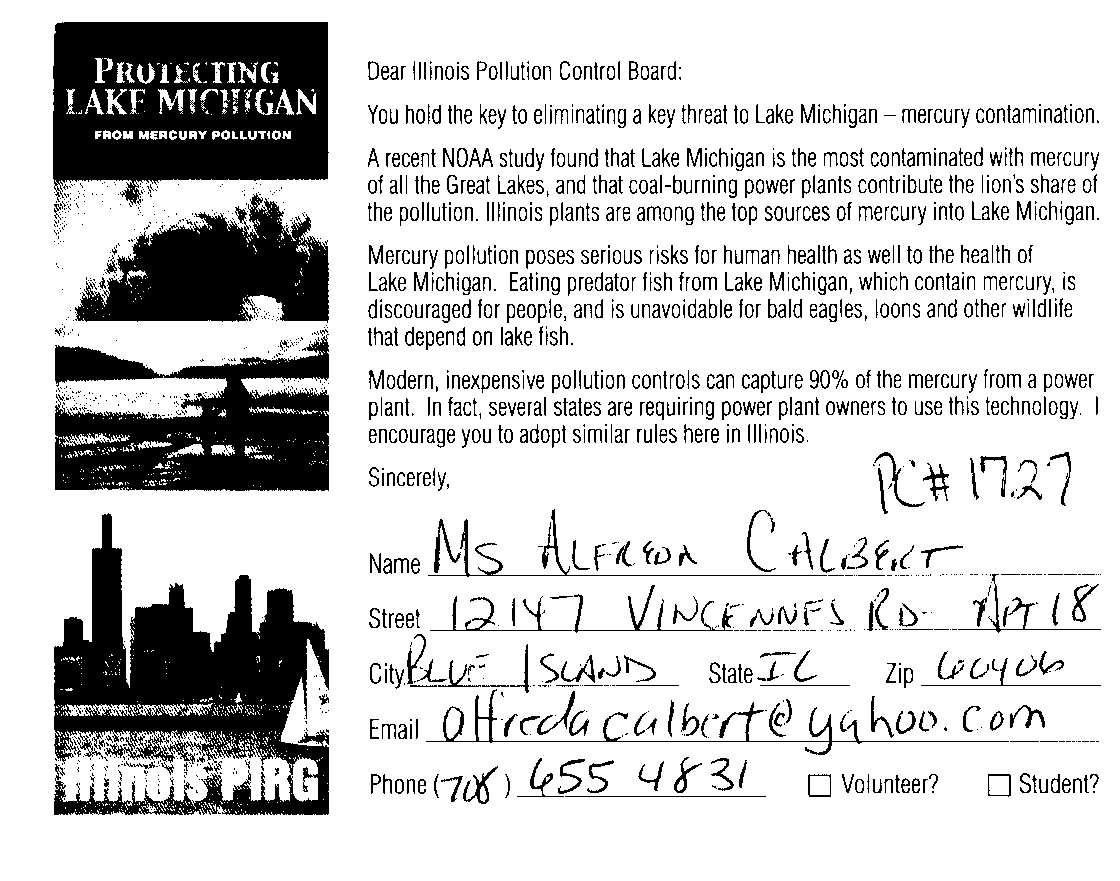 PROTECTING
LAKE MICHIGAN
FROM MERCURY POLLUTION
Illinois PIRG
Dear Illinois Pollution Control Board:
You hold the key to eliminating a key threat to Lake Michigan – mercury contamination.
A recent NOAA study found that Lake Michigan is the most contaminated with mercury
of all the Great Lakes, and that coal-burning power plants contribute the lion's share of
the pollution. Illinois plants are among the top sources of mercury into Lake Michigan.
Mercury pollution poses serious risks for human health as well to the health of
Lake Michigan. Eating predator fish from Lake Michigan, which contain mercury, is
discouraged for people, and is unavoidable for bald eagles, loons and other wildlife
that depend on lake fish.
Modern, inexpensive pollution controls can capture 90% of the mercury from a power
plant. In fact, several states are requiring power plant owners to use this technology. I
encourage you to adopt similar rules here in Illinois.
Sincerely,
PC# 1727
Name Ms ALFREDA CALBERT
Street 12147 VINCENNES RD- APT 18
City BLUE ISLAND State IL Zip 60406
Email alfredacalbert@yahoo.com
Phone (708) 655 4831 Volunteer? Student?